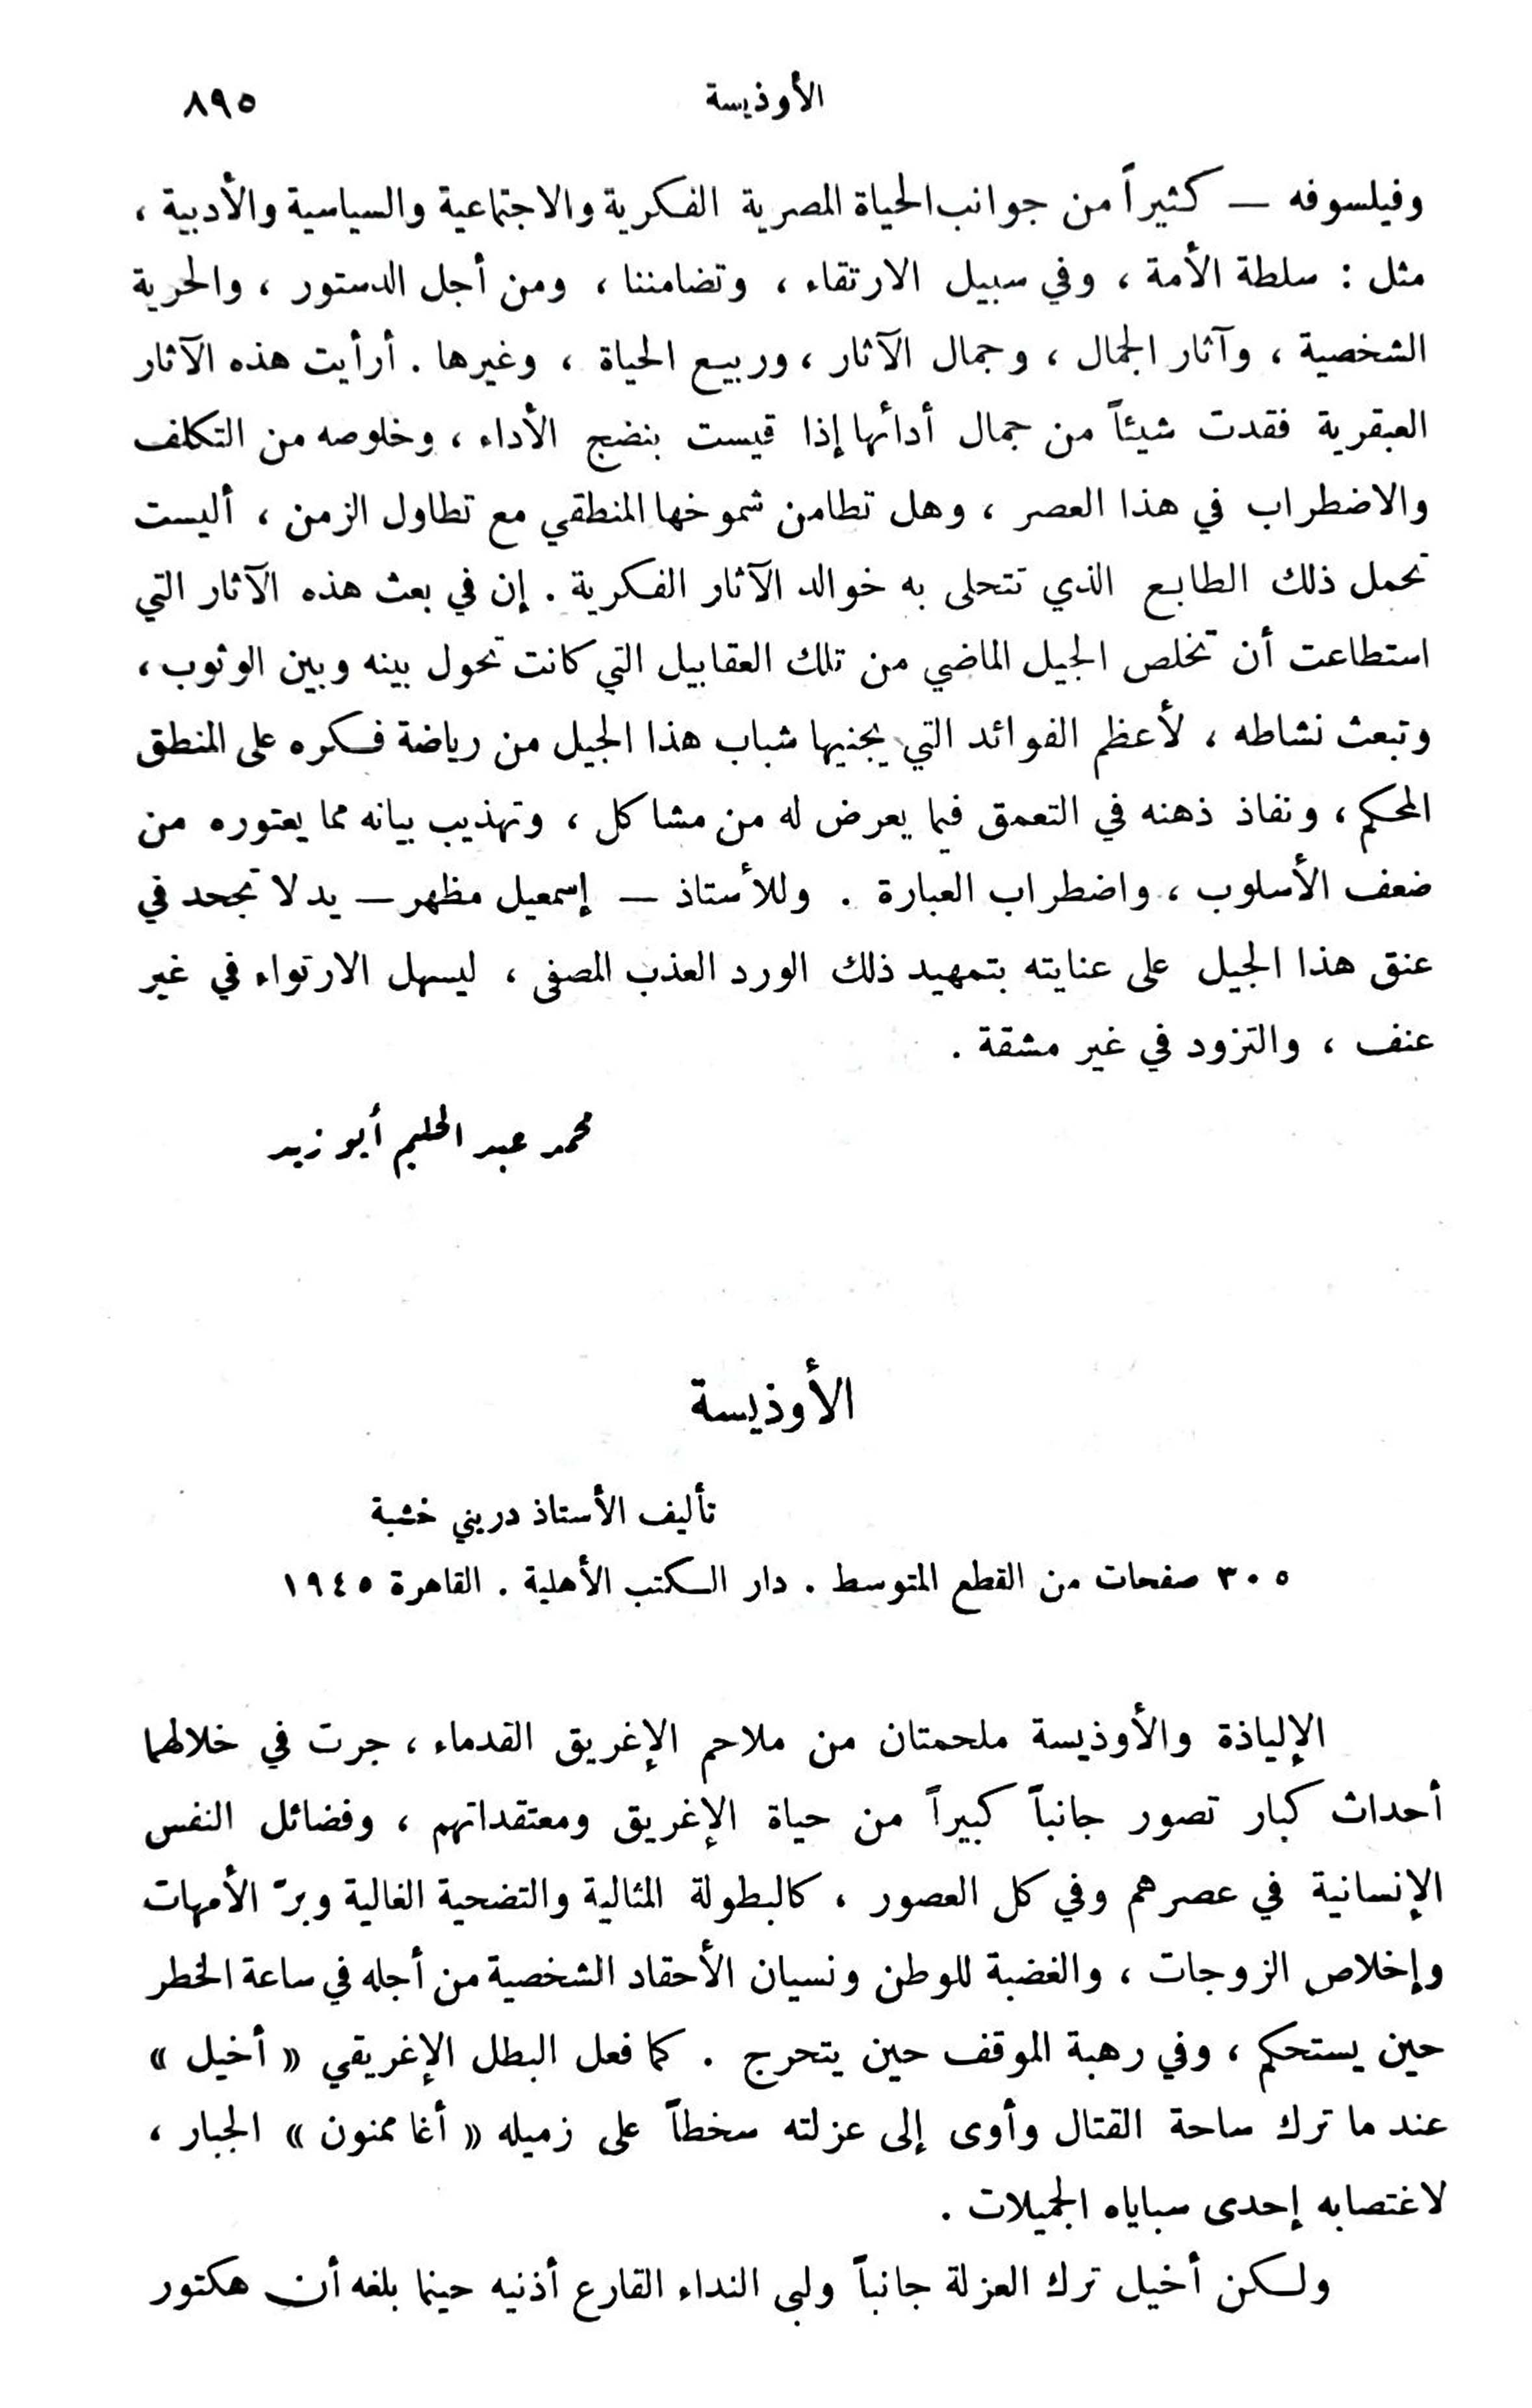 الأوذيسة ٨٩٥
وفيلسوفه — كثيراً من جوانب الحياة المصرية الفكرية والاجتماعية والسياسية والأدبية ،
مثل : سلطة الأمة ، وفي سبيل الارتقاء ، وتضامننا ، ومن أجل الدستور ، والحرية
الشخصية ، وآثار الجمال ، وجمال الآثار ، وربيع الحياة ، وغيرها . أرأيت هذه الآثار
العبقرية فقدت شيئاً من جمال أدائها إذا قيست بنضج الأداء ، وخلوصه من التكلف
والاضطراب في هذا العصر ، وهل تطامن شموخها المنطقي مع تطاول الزمن ، أليست
تحمل ذلك الطابع الذي تتحلى به خوالد الآثار الفكرية . إن في بعث هذه الآثار التي
استطاعت أن تخلص الجيل الماضي من تلك العقابيل التي كانت تحول بينه وبين الوثوب ،
وتبعث نشاطه ، لأعظم الفوائد التي يجنيها شباب هذا الجيل من رياضة فكره على المنطق
المحكم ، ونفاذ ذهنه في التعمق فيما يعرض له من مشاكل ، وتهذيب بيانه مما يعتوره من
ضعف الأسلوب ، واضطراب العبارة . وللأستاذ — إسمعيل مظهر — يد لا تجحد في
عنق هذا الجيل على عنايته بتمهيد ذلك الورد العذب المصفى ، ليسهل الارتواء في غير
عنف ، والتزود في غير مشقة .
محمد عبد الحليم أبو زيد
الأوذيسة
تأليف الأستاذ دريني خشبة
٣٠٥ صفحات من القطع المتوسط . دار الكتب الأهلية . القاهرة ١٩٤٥
الإلياذة والأوذيسة ملحمتان من ملاحم الإغريق القدماء ، جرت في خلالهما
أحداث كبار تصور جانباً كبيراً من حياة الإغريق ومعتقداتهم ، وفضائل النفس
الإنسانية في عصرهم وفي كل العصور ، كالبطولة المثالية والتضحية الغالية وبرّ الأمهات
وإخلاص الزوجات ، والغضبة للوطن ونسيان الأحقاد الشخصية من أجله في ساعة الخطر
حين يستحكم ، وفي رهبة الموقف حين يتحرج . كما فعل البطل الإغريقي « أخيل »
عند ما ترك ساحة القتال وأوى إلى عزلته سخطاً على زميله « أغا ممنون » الجبار ،
لاغتصابه إحدى سباياه الجميلات .
ولكن أخيل ترك العزلة جانباً ولبى النداء القارع أذنيه حينما بلغه أن هكتور